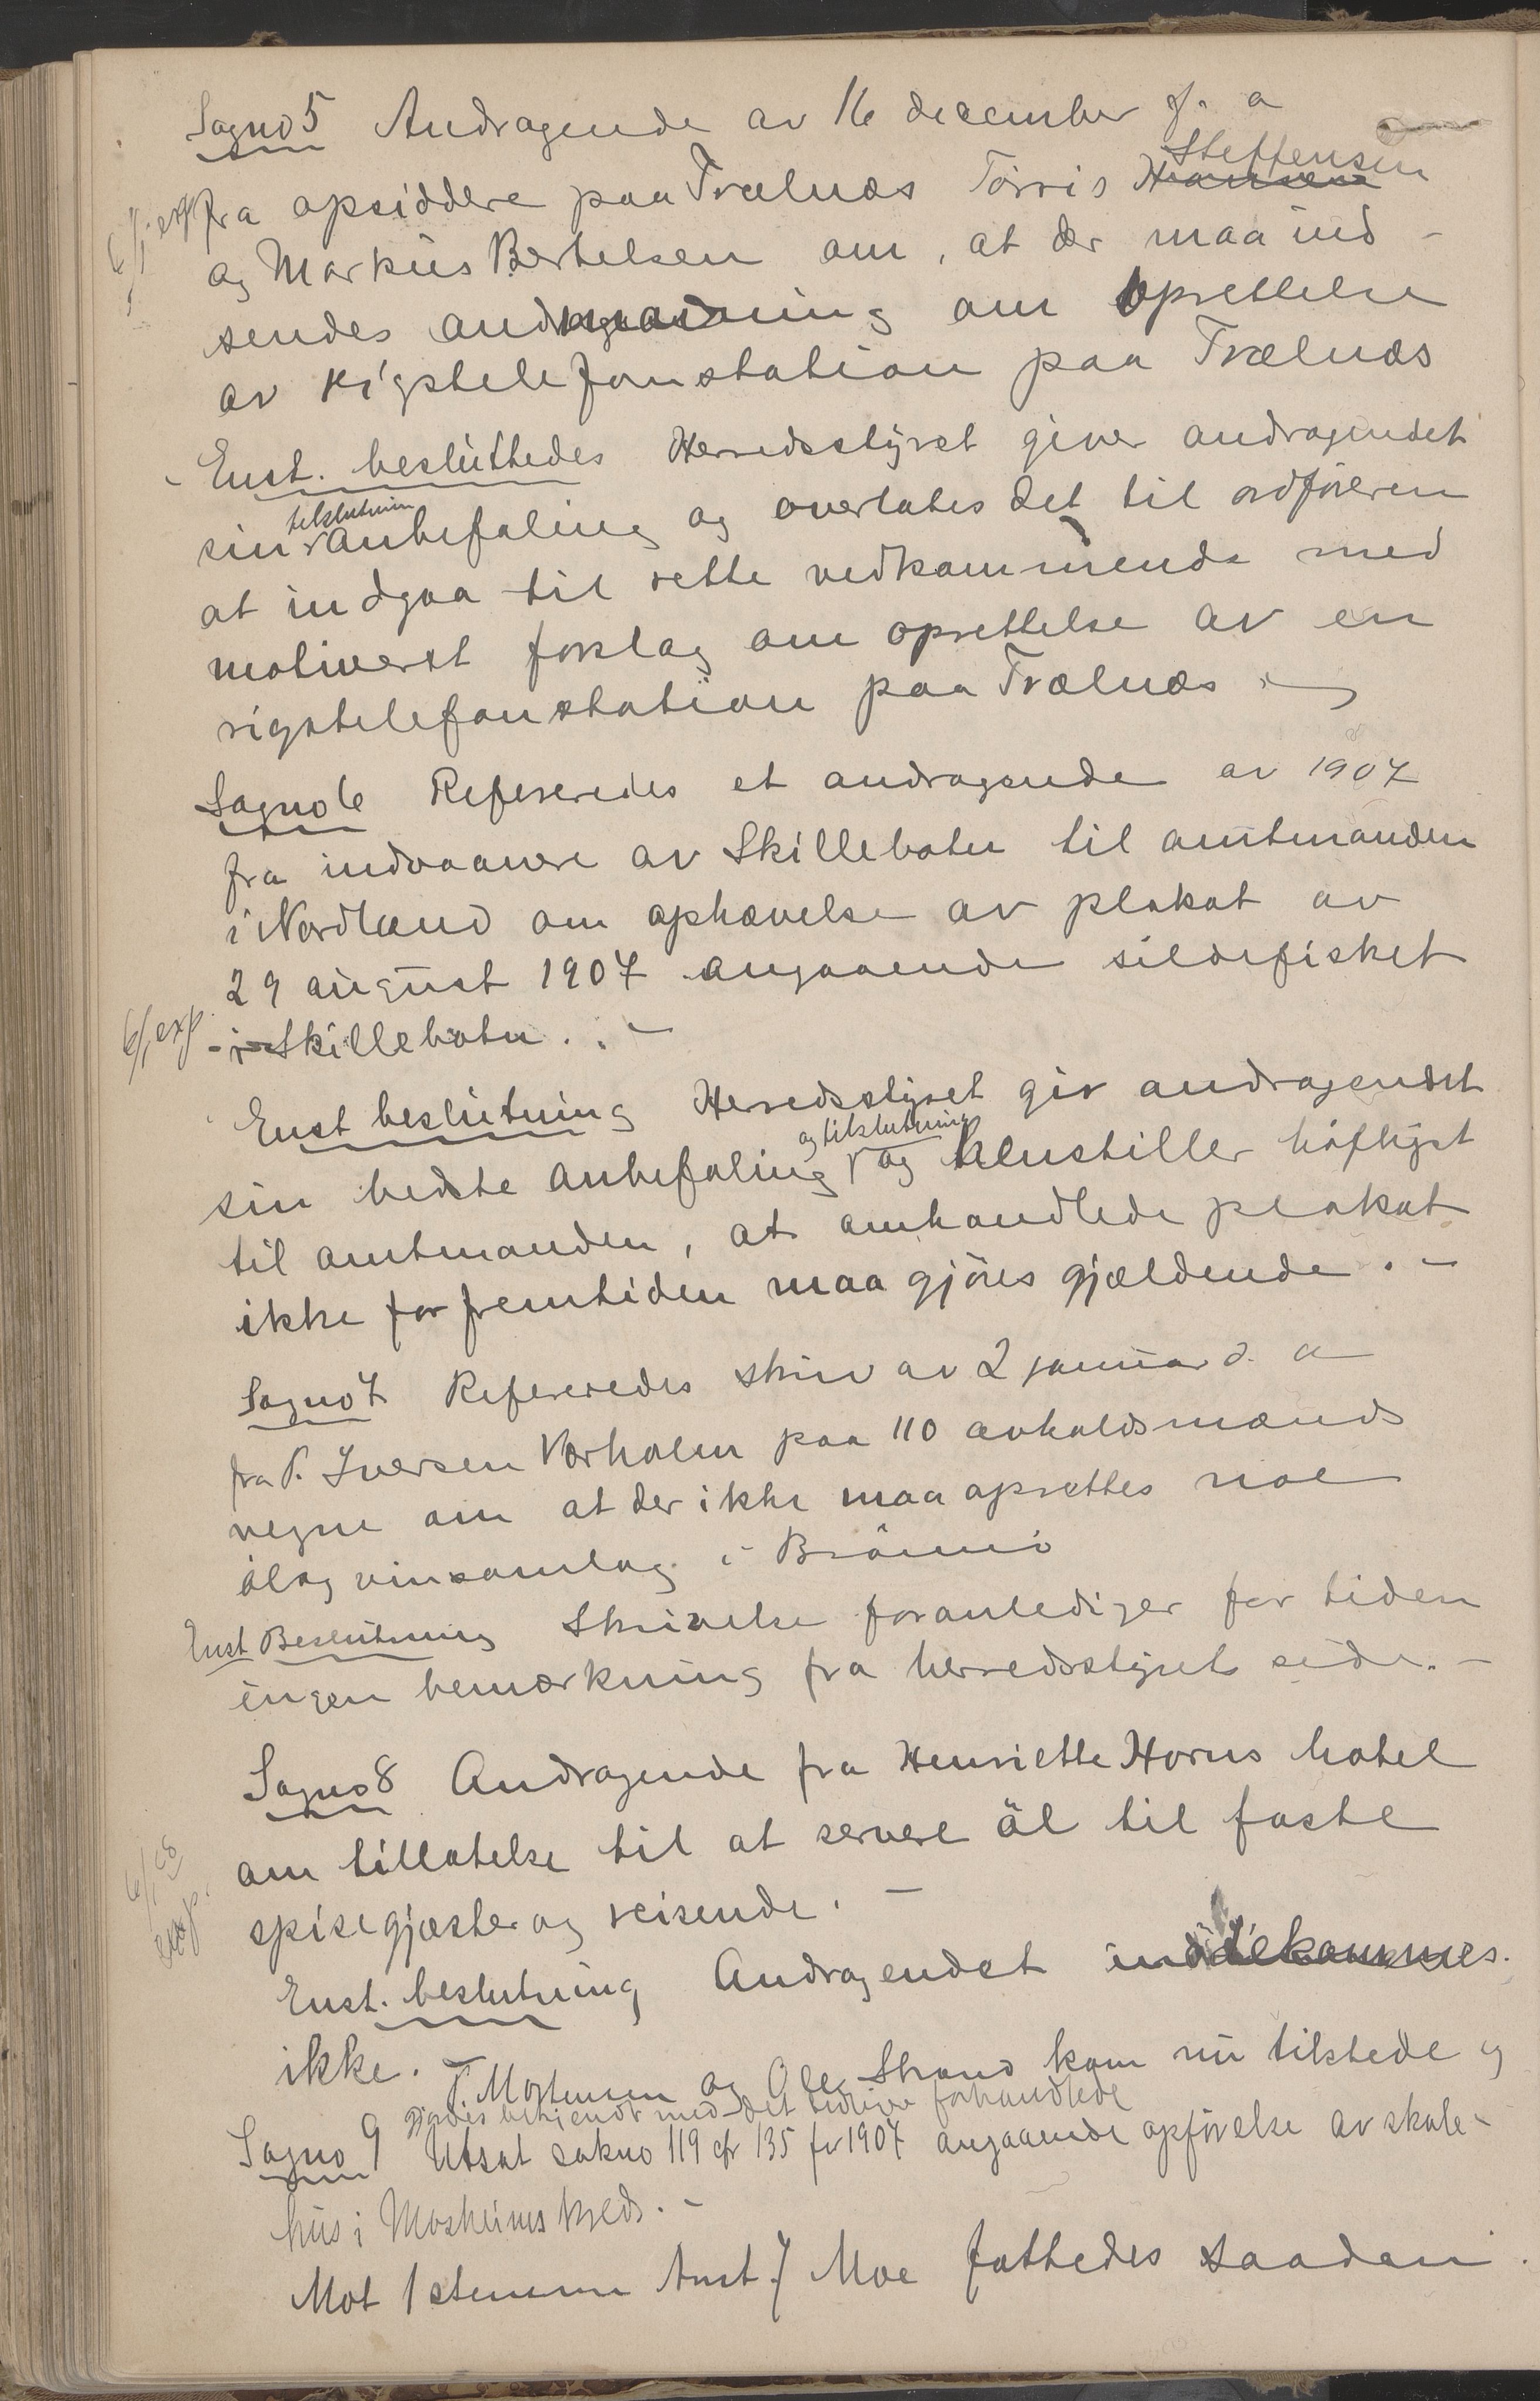 Sagno 5 Andragende av 16 december f. a
6/1 exp fra opsiddere paa Trælnæs Tørris Hansen Steffensen
og Markus Bertelsen om, at der maa ind-
sendes andmodning om oprettelse
av rigstelefonstation paa Trælnæs
Enst. besluttedes Herredsstyret giver andragendet
sin tilslutnin anbefaling og overlates det til ordføreren
at indgaa til rette vedkommende med
motiveret forslag om oprettelse av en
rigstelefonstation paa Trælnæs
Sagno 6 Refereredes et andragende av 1907
fra indvaanere av Skillebotn til amtmanden
i Nordland om ophævelse av plakat av
29 august 1907 angaaende sildefisket
6/1 exp. i Skillebotn. -
Enst beslutning Herredsstyret gir andragendet
sin bedste anbefaling og tilslutning og henstiller høfligst
til amtmanden, at omhandlede plakat
ikke for fremtiden maa gjøres gjældende. -
Sagno 7 Refereredes skriv av 2 januar d. a
fra P. Iversen Værholm paa 110 avholdsmænds
vegne om at der ikke maa oprettes noe
øl og vinsamlag i Brønnø
Enst Beslutning Skrivelse foranlediger for tiden
ingen bemærkning fra herredsstyrets side. -
Sagno 8 Andragende fra Henriette Horns hotel
om tillatelse til at servere øl til faste
6/1 08 exp. spisegjæster og reisende. -
Enst. beslutning Andragendet imøtekommes.
ikke. - P. Mortensen og Ole Strand kom nu tilstede og
gjordes bekjendt med det tidligere forhandlede
Sagno 9 Utsat sakno 119 cfr 135 for 1907 angaaende opførelse av skole-
hus i Mosheims kreds. -
Mot 1 stemme Anst. J Moe fattedes saadan